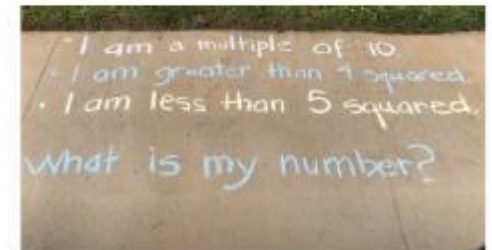 · I am a multiple of 10.
· I am greater than 4 squared.
· I am less than 5 squared.
What is my number?